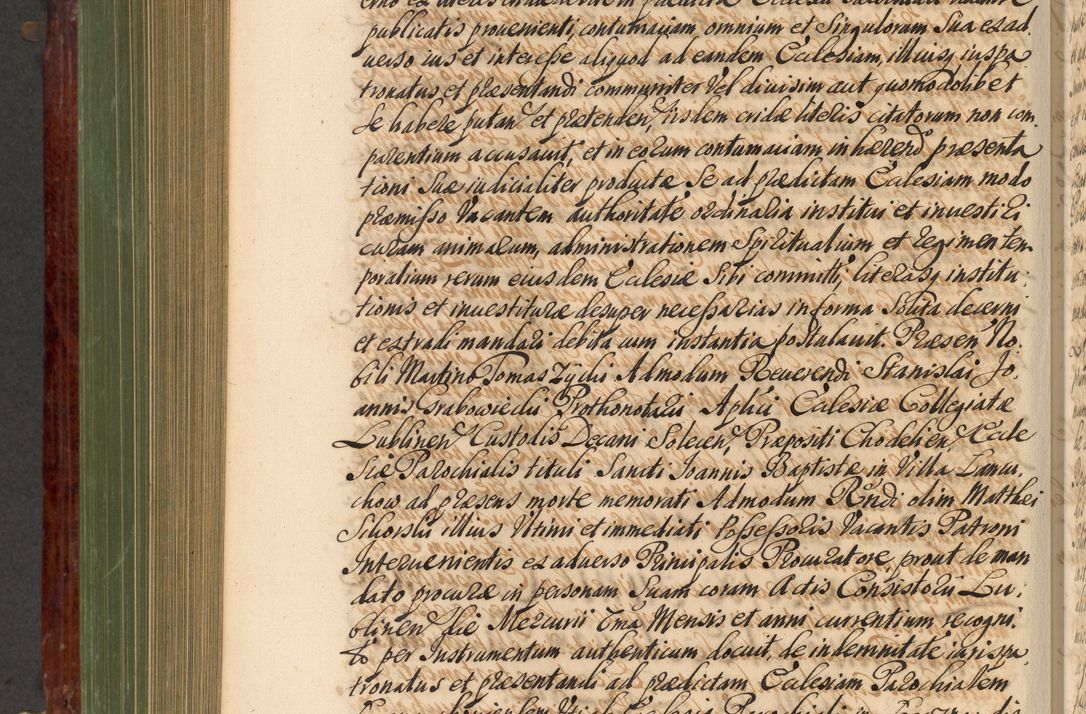 publicatis prouenienti, contumaciam omnium et Singulorum Sua ex ad
uerso ius et interesse aliquod ad eandem Ecclesiam, illiusq iuspa
tronatus et præsentandi communiter Vel diuisim aut quomodolibet
se habere putan, et prætenden, iisdem cridæ literis citatorum non com
parentium accusauit, et in eorum contumaciam inhærend præsenta
tioni Suæ iudicialiter productæ Se ad prædictam Ecclesiam modo
præmisso Vacantem authoritate ordinaria institui et inuestiri
curam animarum, administrationem Spiritualium et regimen tem
poralium rerum eiusdem Ecclesiæ Sibi committi, literasq institu:
tionis et inuestituræ desuper necessarias in forma Solita decerni
et extradi mandari debita cum instantia postulauit. Præsen No:
bili Martino Tomaszÿcki Admodum Reuerendi Stanislai Jo:
annis Grabowiecki Prothonotarii Aplici Ecclesiæ Collegiatæ
Lublinen Custodis Decani Solecen, Præpositi Chodelien, Eccle
siæ Parochialis tituli Sancti Joannis Baptistæ in Villa Lancu,
chow ad præsens morte memorati Admodum Rndi olim Matthei
Sikorski illius Vltimi et immediati Possessoris Vacantis Patroni
Interuenientis ex aduerso Principalis Procuratore, prout de man
dato procuræ in personam Suam coram Actis Consistorÿ Lu:
blinen die Mercurii Mensis et anni currentium recogni:
to per Instrumentum authenticum docuit, de indemnitate iurispa
tronatus et præsentandi ad prædictam Ecclesiam Parochialem